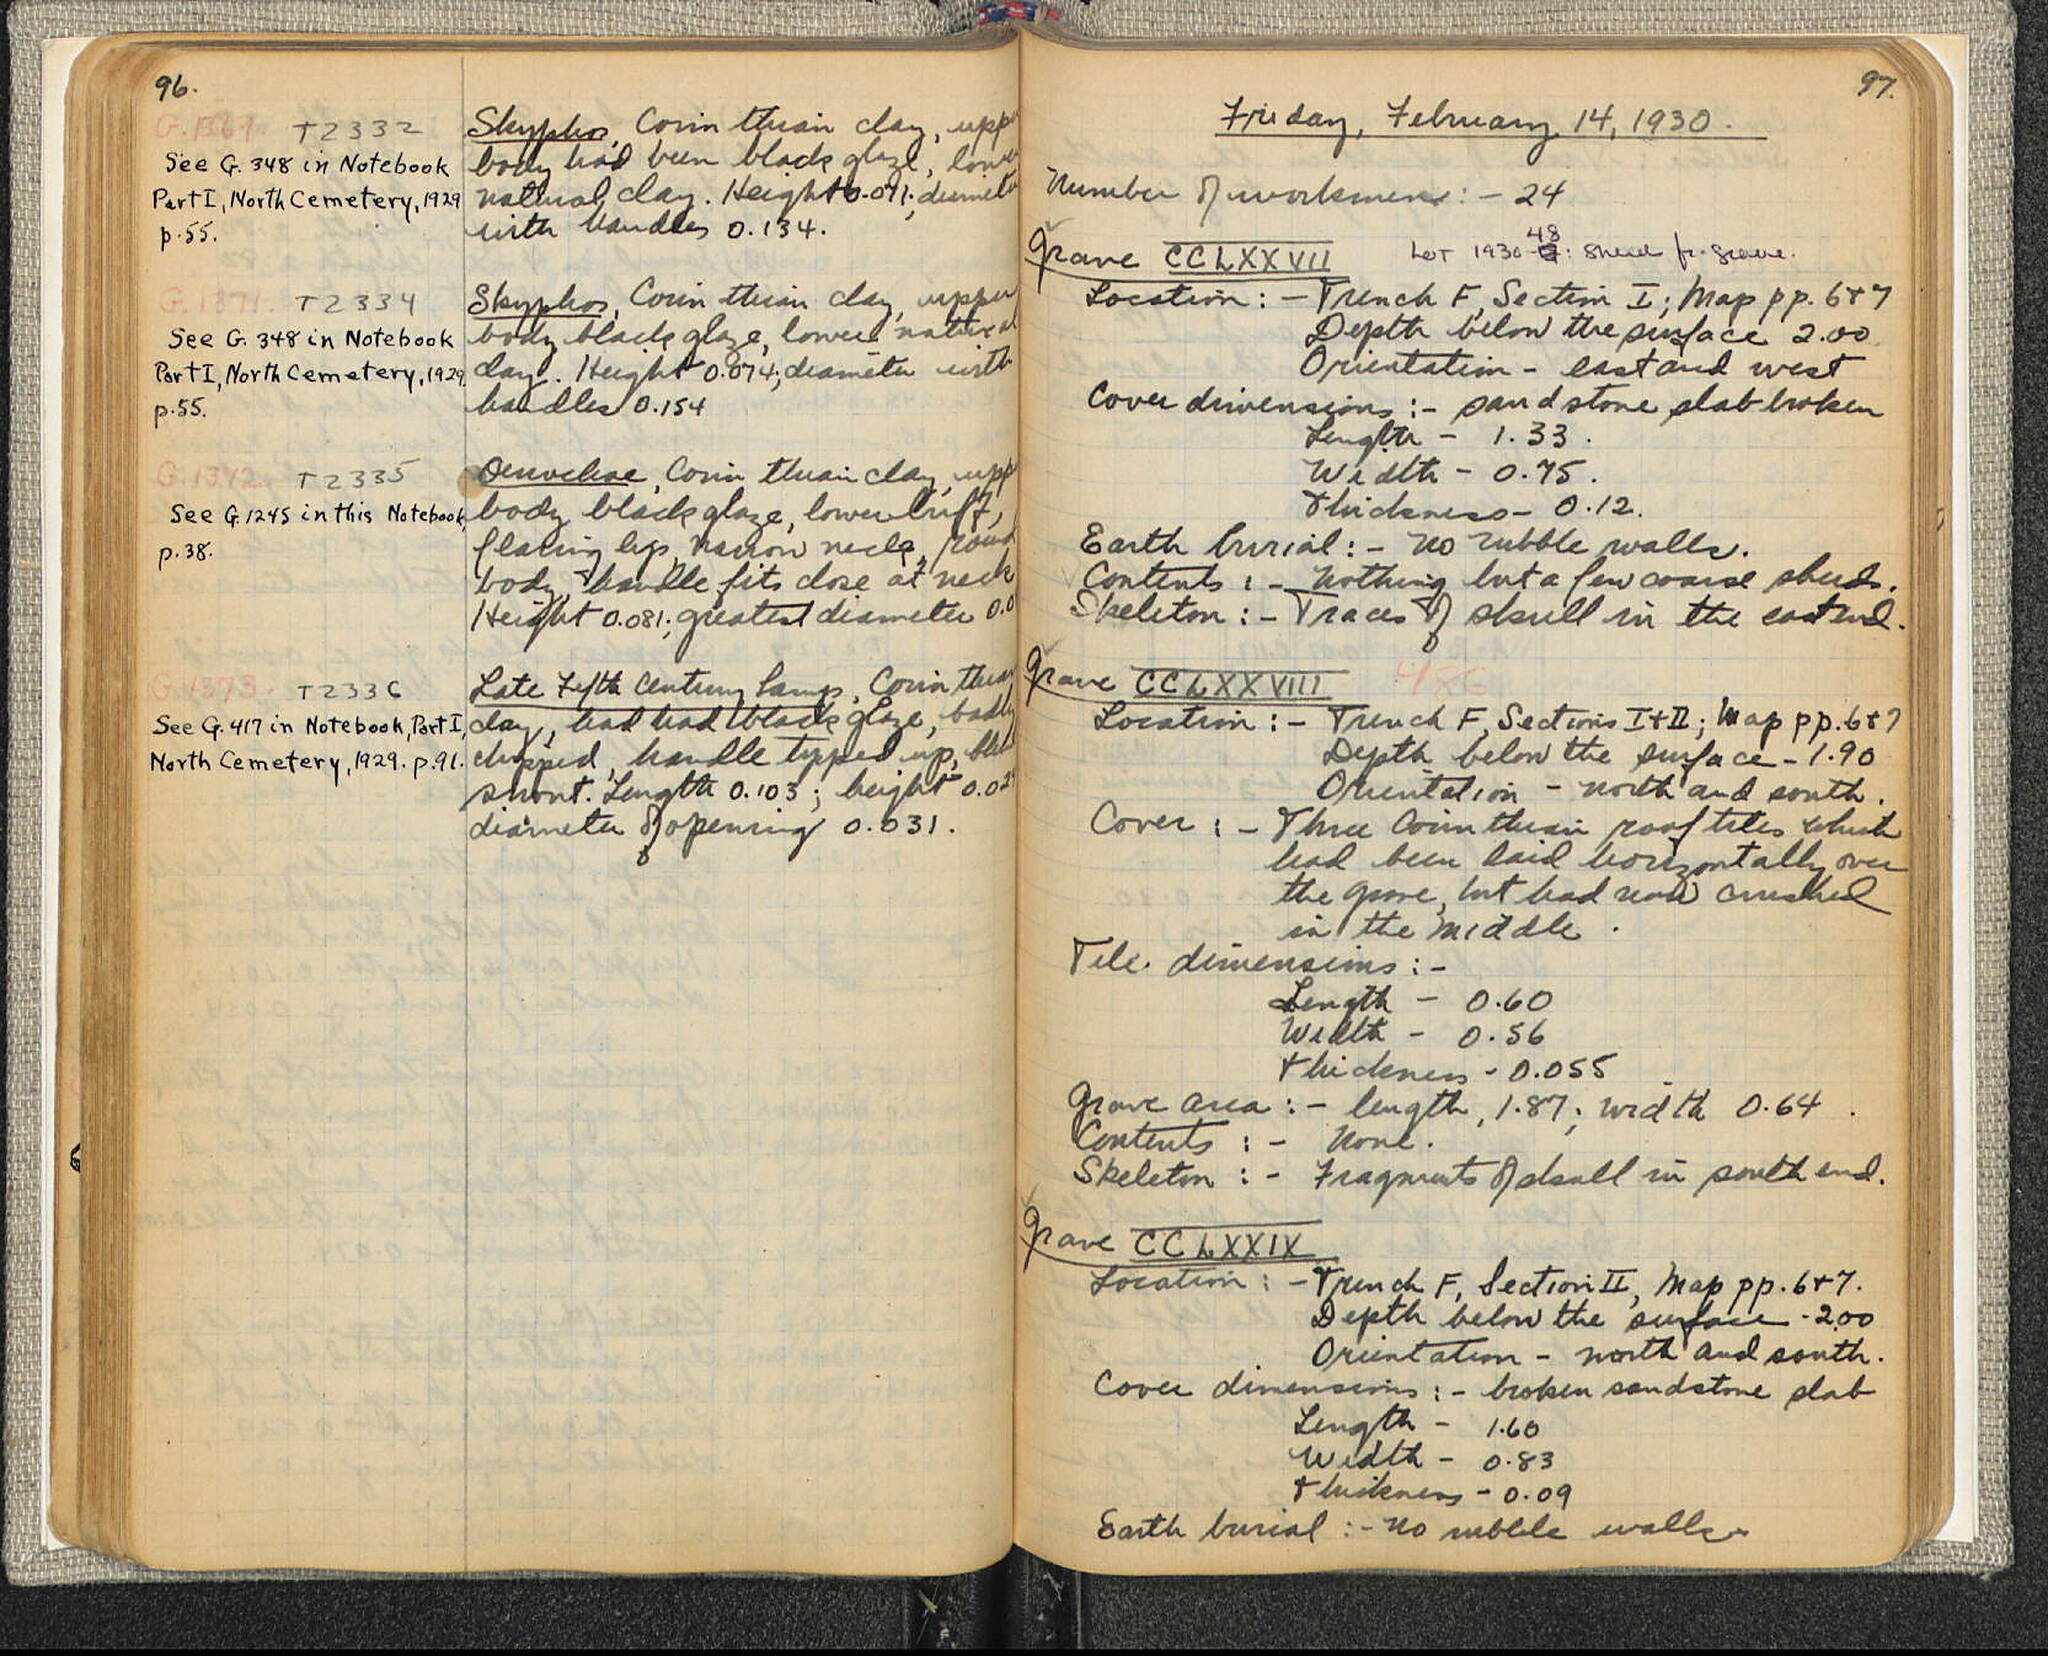 96.
G.1369. T2332
See G. 348 in Notebook
Part I, North Cemetery, 1929
p.55.
Skyphos, Corinthian clay, upper
body had been black glaze, lower
natural clay. Height 0.071; diameter
with handles 0.134.
G.1371. T2334
See G. 348 in Notebook
Part I, North Cemetery, 1929,
p.55.
Skyphos, Corinthian clay, upper
body black glaze, lower natural
clay. Height 0.074; diameter with
handles 0.154
G.1372. T2335
See G.1245 in this Notebook,
p.38.
Oenochoe, Corinthian clay, upp
body black glaze, lower buff,
flaring lip, narrow neck, round
body, handle fits close at neck
Height 0.081; greatest diameter 0.0
G.1373. T2336
See G.417 in Notebook, Part I,
North Cemetery, 1929. p.91.
Late Fifth Century lamp, Corinthian
clay, had had black glaze, badly
chipped, handle tipped up, blunt
snout. Length 0.103; height 0.02
diameter of opening 0.031.
97.
Friday, February 14, 1930.
Number of workmen: - 24
Grave CCLXXVII Lot 1930-48: Sherd fr. grave.
Location: - Trench F, Section I; Map pp. 6+7
Depth below the surface 2.00
Orientation - east and west
Cover dimensions :- sandstone slab broken
Length - 1.33.
Width - 0.75.
Thickness - 0.12.
Earth burial: - No rubble walls.
Contents: - Nothing but a few coarse sherds.
Skeleton: - Traces of skull in the east end.
Grave CCLXXVIII 486
Location: - Trench F, Sections I+II; Map pp. 6+7
Depth below the surface - 1.90
Orientation - north and south.
Cover: - Three Corinthian roof tiles which
had been laid horizontally over
the grave, but had now crushed
in the middle.
Tile dimensions: -
Length - 0.60
Width - 0.56
Thickness - 0.055
Grave area: - length, 1.87; width 0.64.
Contents: - None.
Skeleton: - Fragments of skull in south end.
Grave CCLXXIX
Location: - Trench F, Section II, Map pp. 6+7.
Depth below the surface - 2.00
Orientation - north and south.
Cover dimensions: - broken sandstone slab
Length - 1.60
Width - 0.83
Thickness - 0.09
Earth burial: - No rubble walls